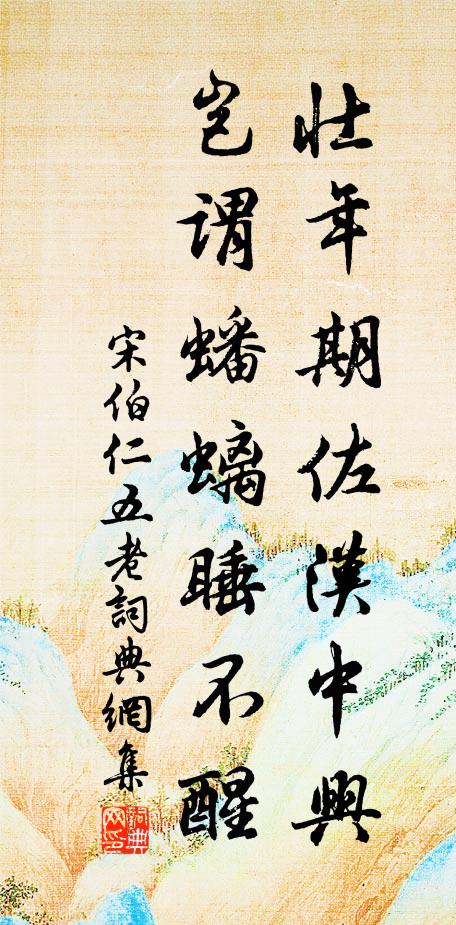 壯年期佐漢中興
豈謂蟠螭睡不醒
宋伯仁五老詞典網集
詞典網印